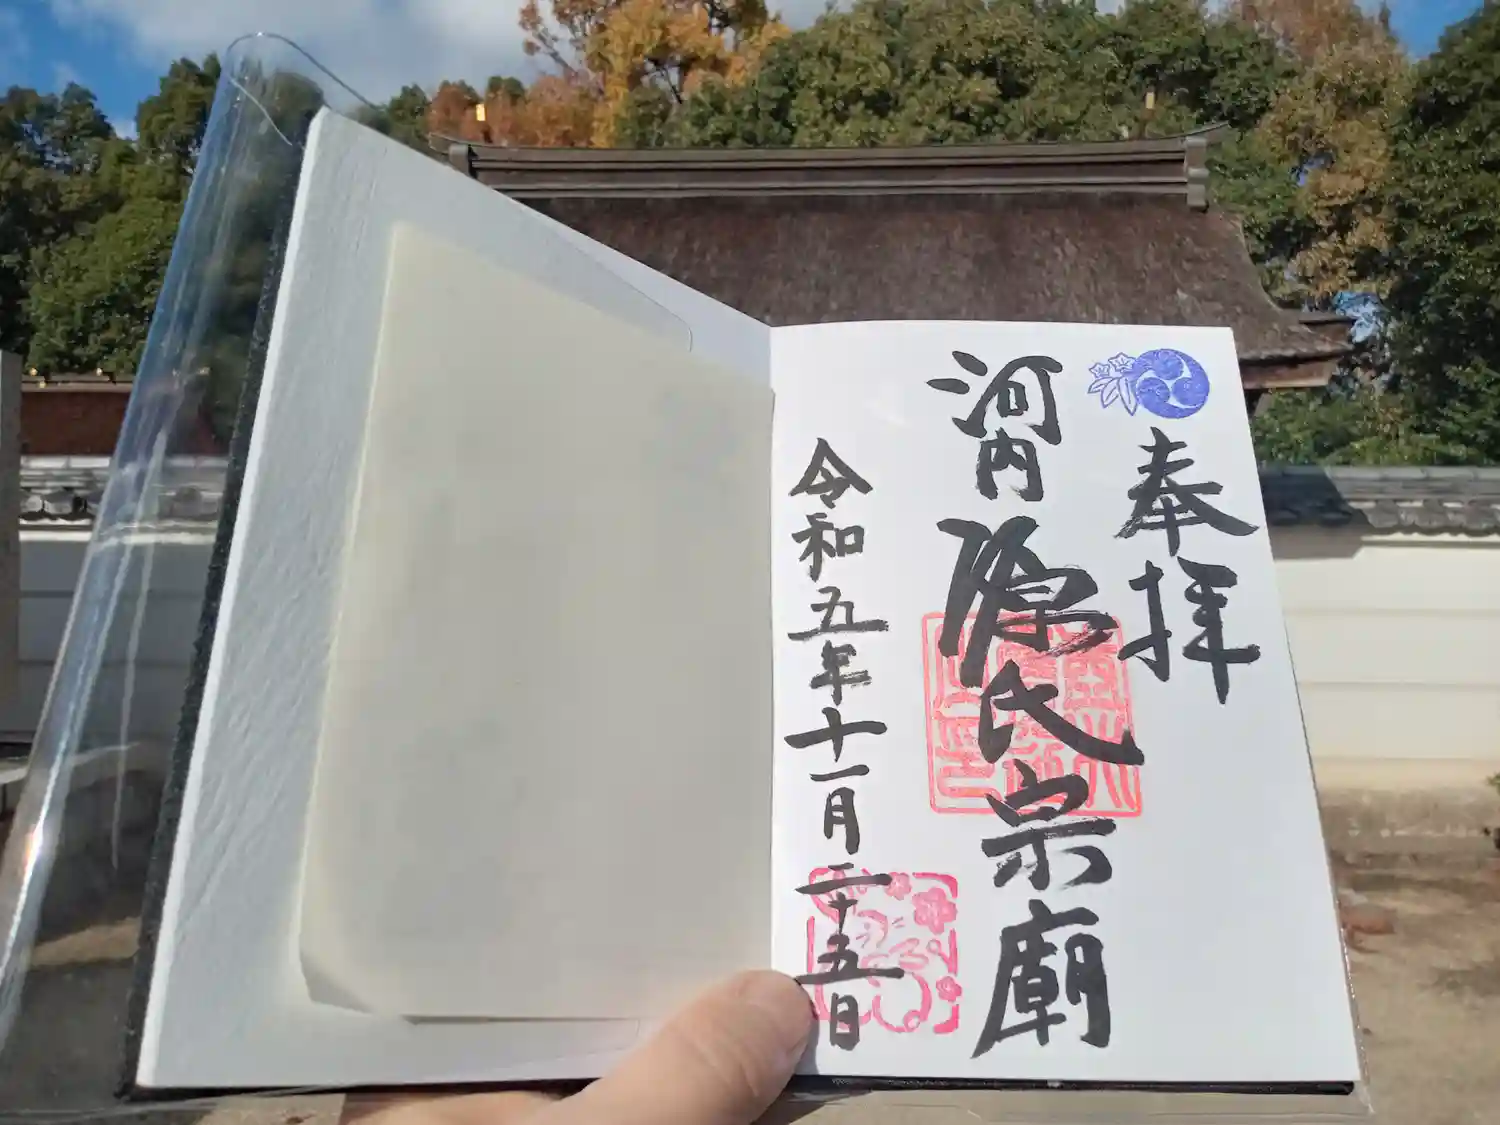 奉拝
河内源氏宗廟
令和五年十一月二十五日